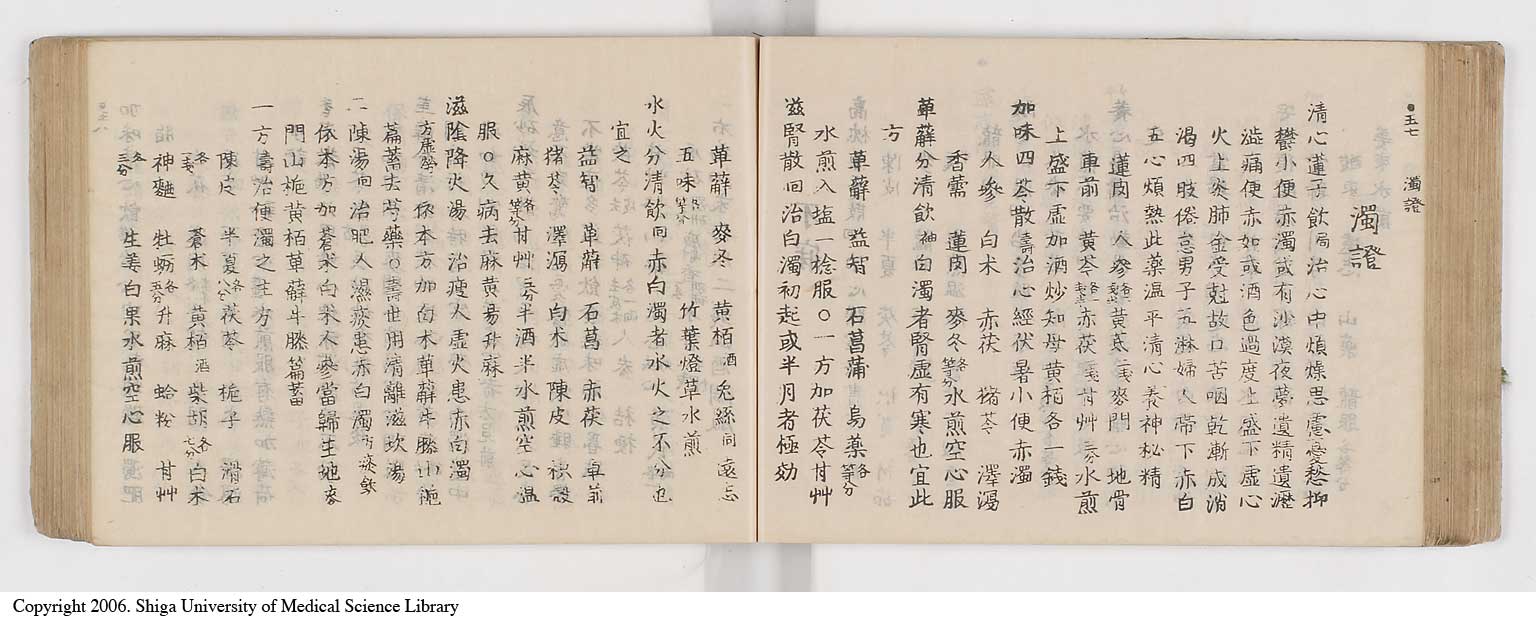 五七 濁證
濁證
清心蓮子飲局治心中煩燥思慮憂愁抑
欝小便赤濁或有沙漠夜夢遺精遺瀝
澁痛便赤如或酒色過度上盛下虛心
火上炎肺金受尅故口苦咽乾漸成消
渴四肢倦怠男子五淋婦人帶下赤白
五心煩熱此藥温平清心養神秘精
蓮肉 人參 黄芪 麥門 地骨
車前 黄芩 赤茯 甘艸 水煎
上盛下虛加酒炒知母黄栢各一錢
加味四苓散壽治心經伏暑小便赤濁
人參 白朮 赤茯 猪苓 澤瀉
香薷 蓮肉 麥冬各等分水煎空心服
萆薢分清飲 白濁者腎虛有寒也宜此
方
萆薢 益智 石菖蒲 烏藥各等分
水煎入塩一捻服○一方加茯苓甘艸
滋腎散回治白濁初起或半月者極効
萆薢 麥冬二 黄栢酒 兎絲同 遠志
五味各等分 竹葉燈草水煎
水火分清飲回赤白濁者水火之不分也
宜之
益智 萆薢 石菖 赤茯 車前
猪苓 澤瀉 白朮 陳皮 枳殼
麻黄各等分甘艸三分半酒半水煎空心温
服○久病去麻黄易升麻
滋陰降火湯治瘦人虛火患赤白濁
方虛勞 依本方加白朮萆薢牛膝山梔
萹蓄去芍藥○壽世用清離滋坎湯
二陳湯回治肥人濕痰患赤白濁方痰飲
依本方加蒼朮白朮人參當歸生地麥
門山梔黄栢萆薢牛膝萹蓄
一方壽治便濁之主方
陳皮 半夏各八分茯苓 梔子 滑石
各一戔 蒼朮 黄栢酒 柴胡各七分白朮
神麯 牡蛎各五分升麻 蛤粉 甘艸
各三分 生姜白果水煎空心服